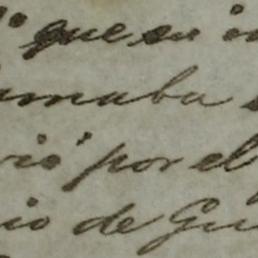 que su
maba
rió por el
io de Gu